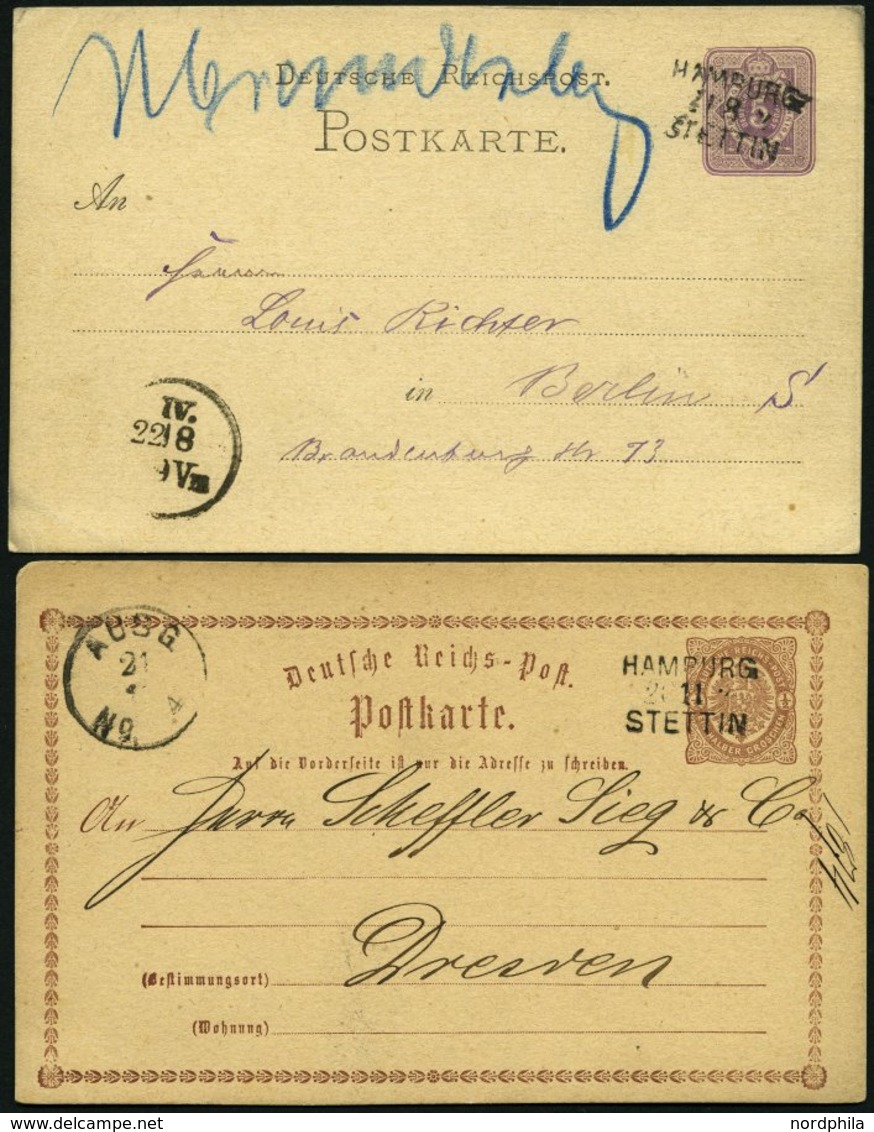 DEUTSCHE REICHSPOST.
POSTKARTE.
HAMBURG
STETTIN
5
An
Herrn
Louis Richter
in Berlin S
Brandenburg Str 73
IV.
22 8
9 Vm
AUSG
21
No
4
Deutsche Reichs-Post.
Postkarte.
HAMBURG
11
STETTIN
HALBER GROSCHEN
Auf die Vorderseite ist nur die Adresse zu schreiben.
An Herrn Scheffler Sieg & Co
Dresden
(Bestimmungsort)
(Wohnung)
nordphila